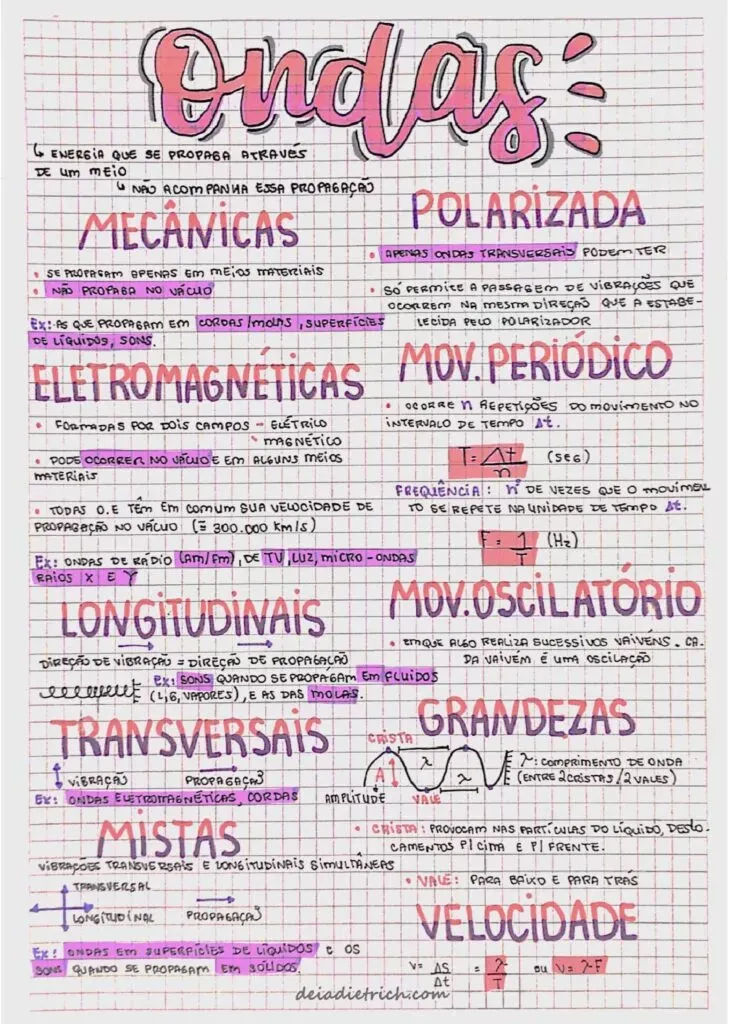 Ondas
↳ ENERGIA QUE SE PROPAGA ATRAVÉS
DE UM MEIO
↳ NÃO ACOMPANHA ESSA PROPAGAÇÃO
MECÂNICAS
• SE PROPAGAM APENAS EM MEIOS MATERIAIS
• NÃO PROPAGA NO VÁCUO
Ex: AS QUE PROPAGAM EM CORDAS/MOLAS, SUPERFÍCIES
DE LÍQUIDOS, SONS.
ELETROMAGNÉTICAS
• FORMADAS POR DOIS CAMPOS - ELÉTRICO
MAGNÉTICO
• PODE OCORRER NO VÁCUO E EM ALGUNS MEIOS
MATERIAIS
• TODAS O.E TÊM EM COMUM SUA VELOCIDADE DE
PROPAGAÇÃO NO VÁCUO (≅ 300.000 Km/s)
Ex: ONDAS DE RÁDIO (AM/FM), DE TV, LUZ, MICRO-ONDAS
RAIOS X E γ
LONGITUDINAIS
DIREÇÃO DE VIBRAÇÃO = DIREÇÃO DE PROPAGAÇÃO
Ex: SONS QUANDO SE PROPAGAM EM FLUIDOS
(L, G, VAPORES), E AS DAS MOLAS.
TRANSVERSAIS
VIBRAÇÃO PROPAGAÇÃO
Ex: ONDAS ELETROMAGNÉTICAS, CORDAS
MISTAS
VIBRAÇÕES TRANSVERSAIS E LONGITUDINAIS SIMULTÂNEAS
TRANSVERSAL
LONGITUDINAL PROPAGAÇÃO
Ex: ONDAS EM SUPERFÍCIES DE LÍQUIDOS E OS
SONS QUANDO SE PROPAGAM EM SÓLIDOS.
POLARIZADA
• APENAS ONDAS TRANSVERSAIS PODEM TER
• SÓ PERMITE A PASSAGEM DE VIBRAÇÕES QUE
OCORREM NA MESMA DIREÇÃO QUE A ESTABE-
LECIDA PELO POLARIZADOR
MOV. PERIÓDICO
• OCORRE n REPETIÇÕES DO MOVIMENTO NO
INTERVALO DE TEMPO Δt.
T = Δt/n (SEG)
FREQUÊNCIA: nº DE VEZES QUE O MOVIMEN
TO SE REPETE NA UNIDADE DE TEMPO Δt.
F = 1/T (Hz)
MOV. OSCILATÓRIO
• EM QUE ALGO REALIZA SUCESSIVOS VAIVÉNS. CA.
DA VAIVÉM É UMA OSCILAÇÃO
GRANDEZAS
CRISTA
λ λ: COMPRIMENTO DE ONDA
A λ (ENTRE 2 CRISTAS / 2 VALES)
AMPLITUDE VALE
• CRISTA: PROVOCAM NAS PARTÍCULAS DO LÍQUIDO, DESLO-
CAMENTOS P/ CIMA E P/ FRENTE.
• VALE: PARA BAIXO E PARA TRÁS
VELOCIDADE
V = ΔS/Δt = λ/T OU V = λ·F
deiadietrich.com